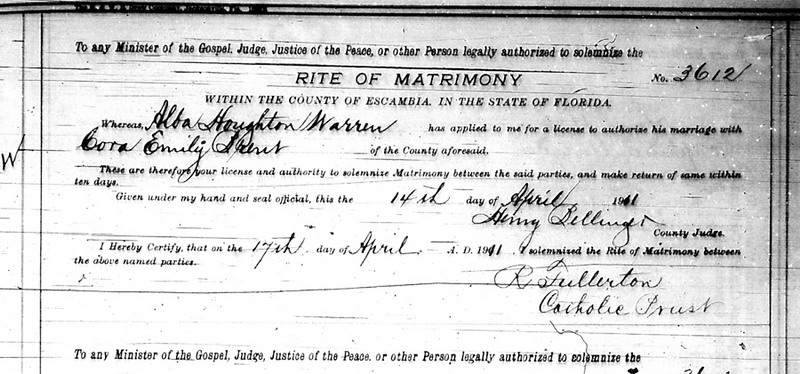 To any Minister of the Gospel, Judge, Justice of the Peace, or other Person legally authorized to solemnize the
RITE OF MATRIMONY
No. 3612
WITHIN THE COUNTY OF ESCAMBIA, IN THE STATE OF FLORIDA.
Whereas, Alba Houghton Warren has applied to me for a license to authorize his marriage with
Cora Emily Brent of the County aforesaid.
W
These are therefore your license and authority to solemnize Matrimony between the said parties, and make return of same within
ten days.
Given under my hand and seal official, this the 14th day of April 1911
Henry Bellinger
County Judge.
I Hereby Certify, that on the 17th day of April A. D. 1911 I solemnized the Rite of Matrimony between
the above named parties.
R Fullerton
Catholic Priest
To any Minister of the Gospel, Judge, Justice of the Peace, or other Person legally authorized to solemnize the